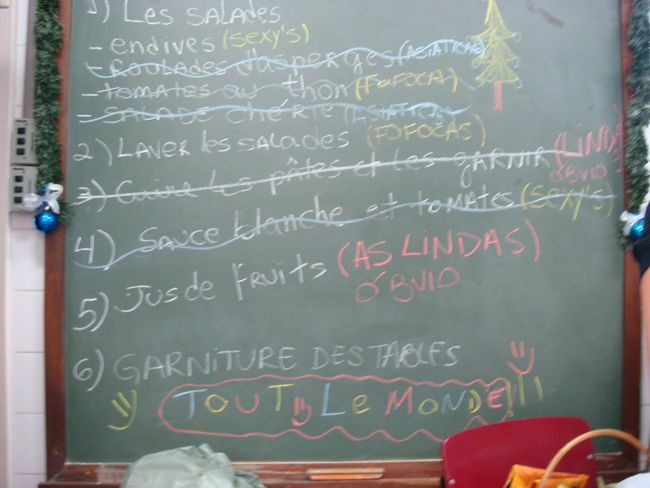 1) Les SALADES
- endives (sexy's)
- Roulades d'asperges (ASIÁTICAS)
- tomates au thon (FOFOCAS)
- SALADE CHÉRIE (ASIÁTICAS)
2) LAVER les SALADES (FOFOCAS)
3) Cuire Les pâtes et Les GARNIR (LINDAS
ÓBVIO)
4) SAUCE blanche et tomates (SEXY'S)
5) Jus de fruits (AS LINDAS)
ÓBVIO
6) GARNITURE DES TABLES
TOUT Le MONDE!